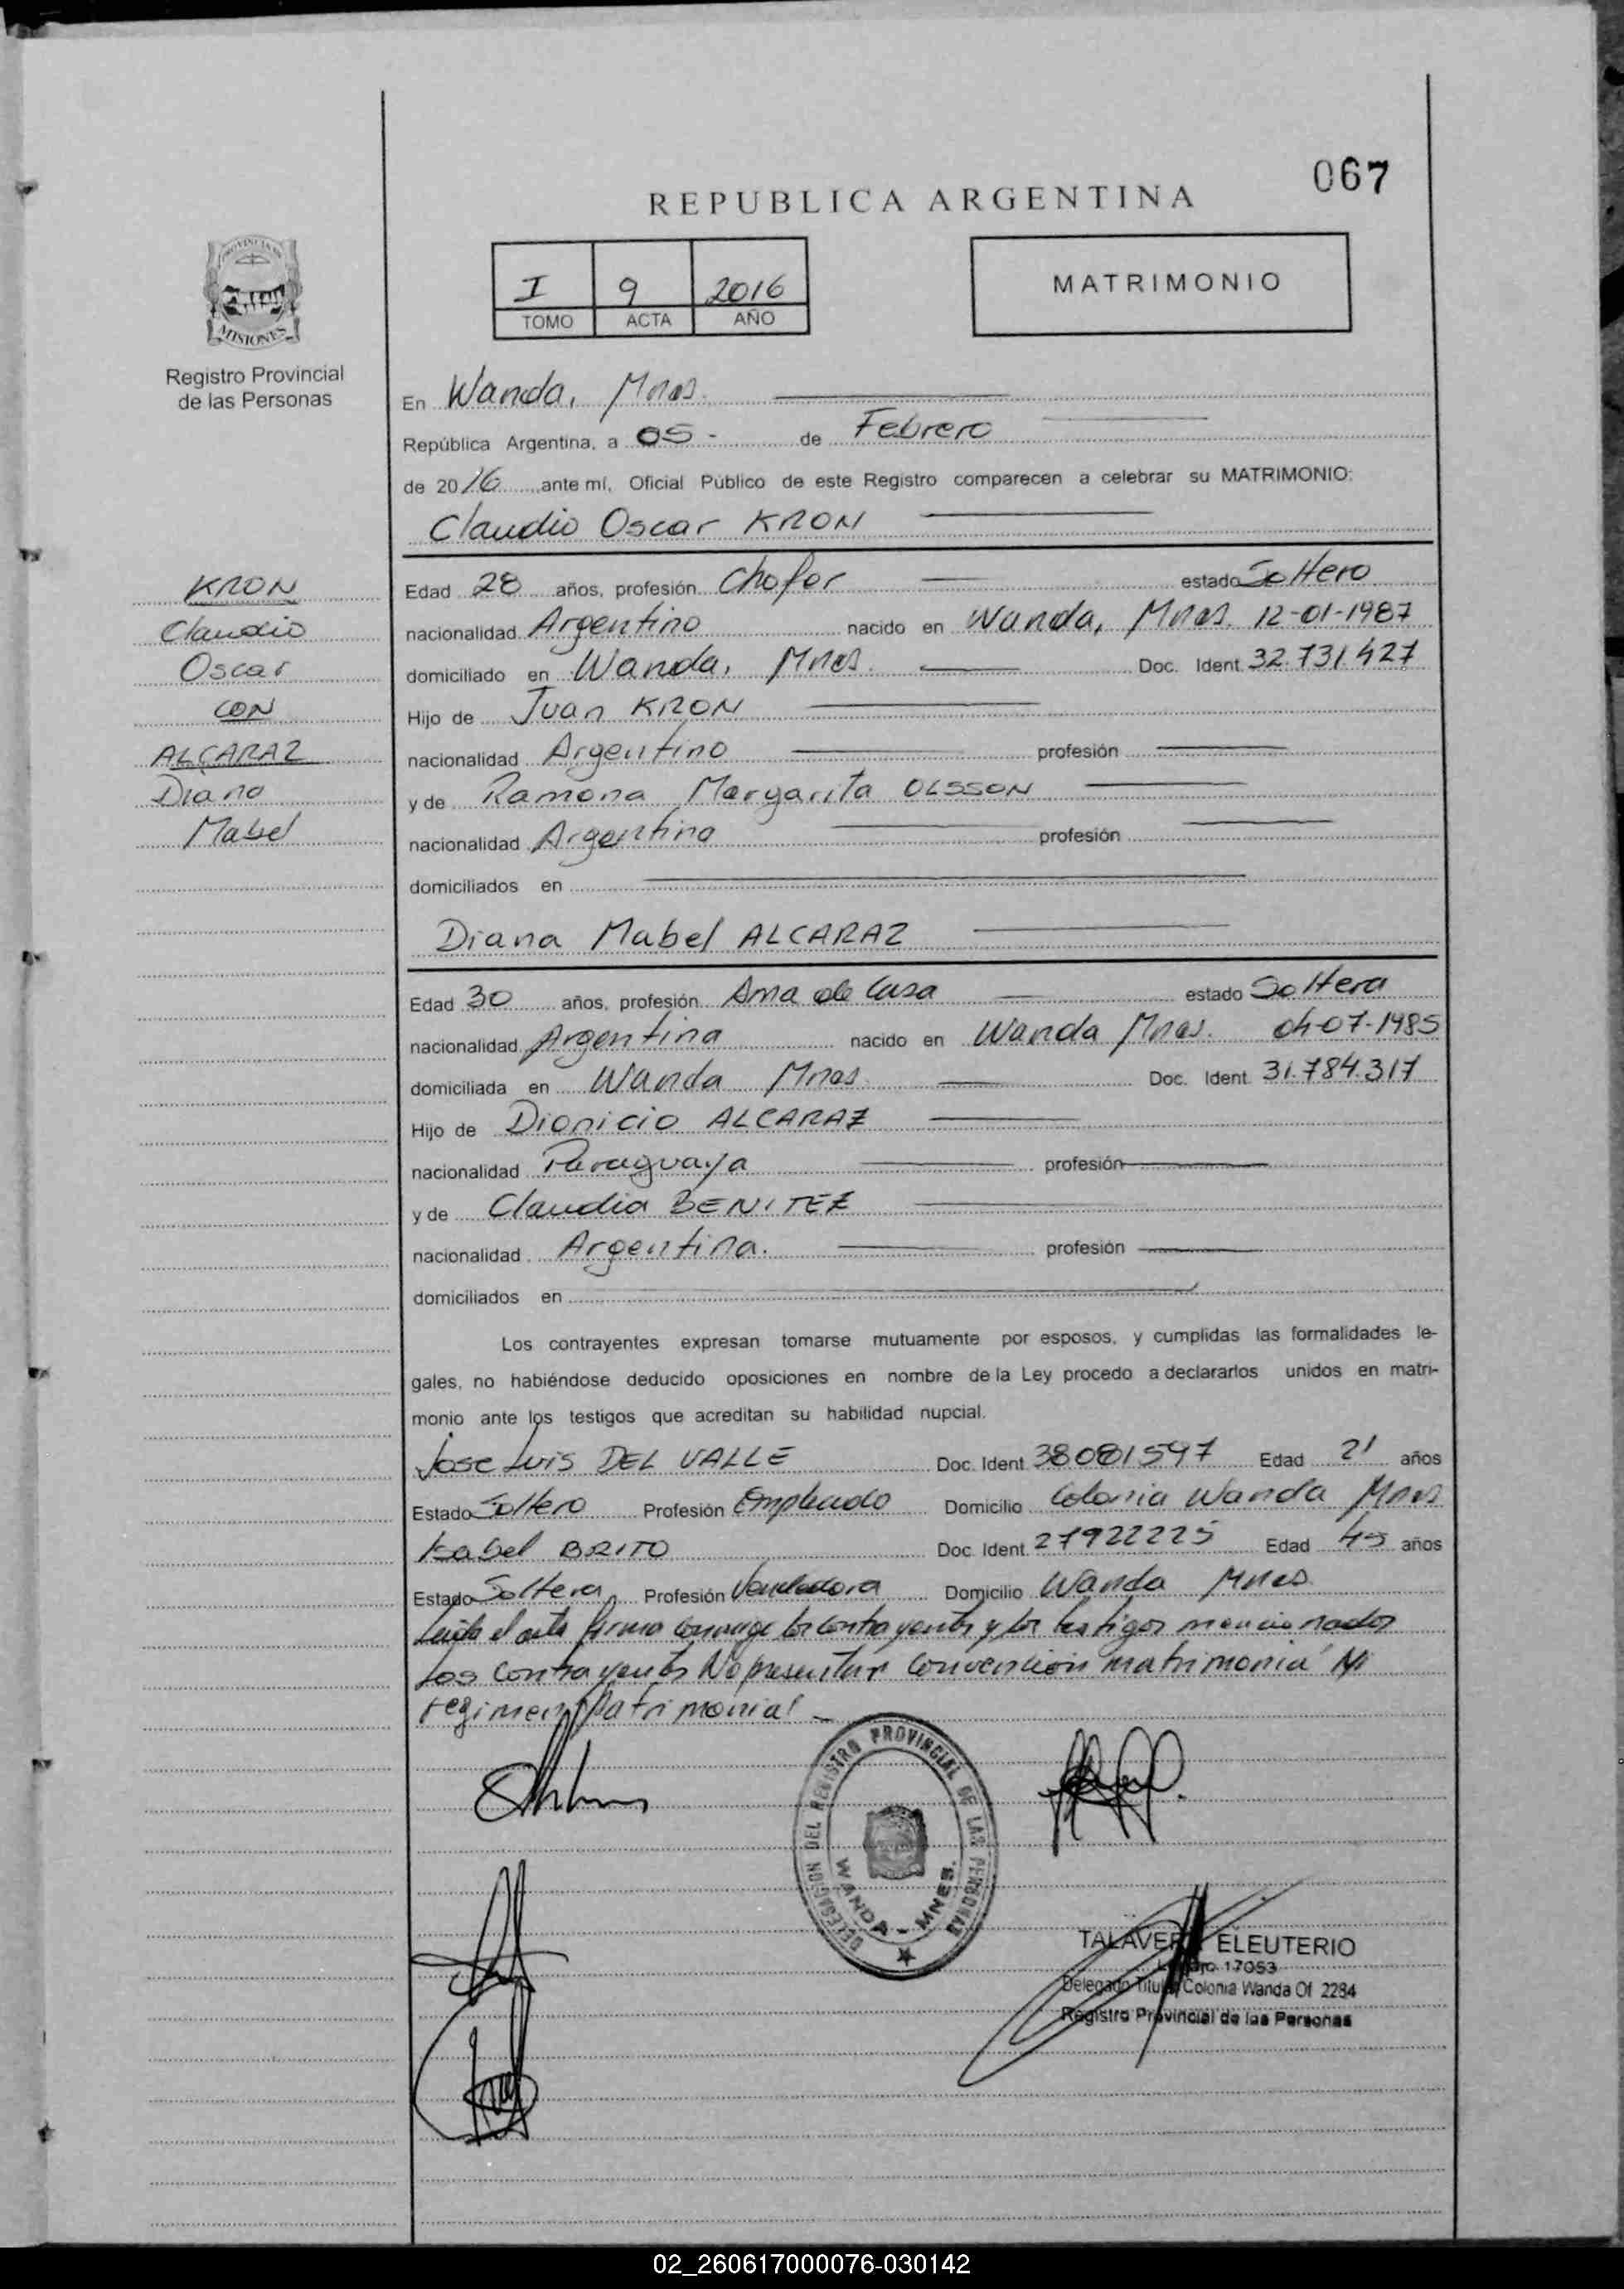 067
REPUBLICA ARGENTINA
I 9 2016
TOMO ACTA AÑO
MATRIMONIO
PROVINCIA DE
MISIONES
Registro Provincial
de las Personas
En Wanda, Mnes.
República Argentina, a 05 - de Febrero
de 2016 ante mí, Oficial Público de este Registro comparecen a celebrar su MATRIMONIO:
Claudio Oscar KRON
KRON
Claudio
Oscar
CON
ALCARAZ
Diana
Mabel
Edad 28 años, profesión Chofer estado Soltero
nacionalidad Argentino nacido en Wanda, Mnes. 12-01-1987
domiciliado en Wanda, Mnes. Doc. Ident. 32.731.427
Hijo de Juan KRON
nacionalidad Argentino profesión
y de Ramona Margarita OLSSON
nacionalidad Argentina profesión
domiciliados en
Diana Mabel ALCARAZ
Edad 30 años, profesión Ama de Casa estado Soltera
nacionalidad Argentina nacido en Wanda Mnes. 04-07-1985
domiciliada en Wanda Mnes. Doc. Ident. 31.784.317
Hijo de Dionicio ALCARAZ
nacionalidad Paraguaya profesión
y de Claudia BENITEZ
nacionalidad Argentina. profesión
domiciliados en
Los contrayentes expresan tomarse mutuamente por esposos, y cumplidas las formalidades le-
gales, no habiéndose deducido oposiciones en nombre de la Ley procedo a declararlos unidos en matri-
monio ante los testigos que acreditan su habilidad nupcial.
Jose Luis DEL VALLE Doc. Ident. 38081597 Edad 21 años
Estado Soltero Profesión Empleado Domicilio Colonia Wanda Mnes
Isabel BRITO Doc. Ident. 27922225 Edad 45 años
Estado Soltera Profesión Vendedora Domicilio Wanda Mnes
Leida el acta firman conmigo los contrayentes y los testigos mencionados
Los contrayentes No presentan Convención matrimonial Ni
regimen Patrimonial -
DELEGACION DEL REGISTRO PROVINCIAL DE LAS PERSONAS
WANDA - MNES.
TALAVERA ELEUTERIO
Legajo 17053
Delegado Titular Colonia Wanda Of 2284
Registro Provincial de las Personas
02_260617000076-030142